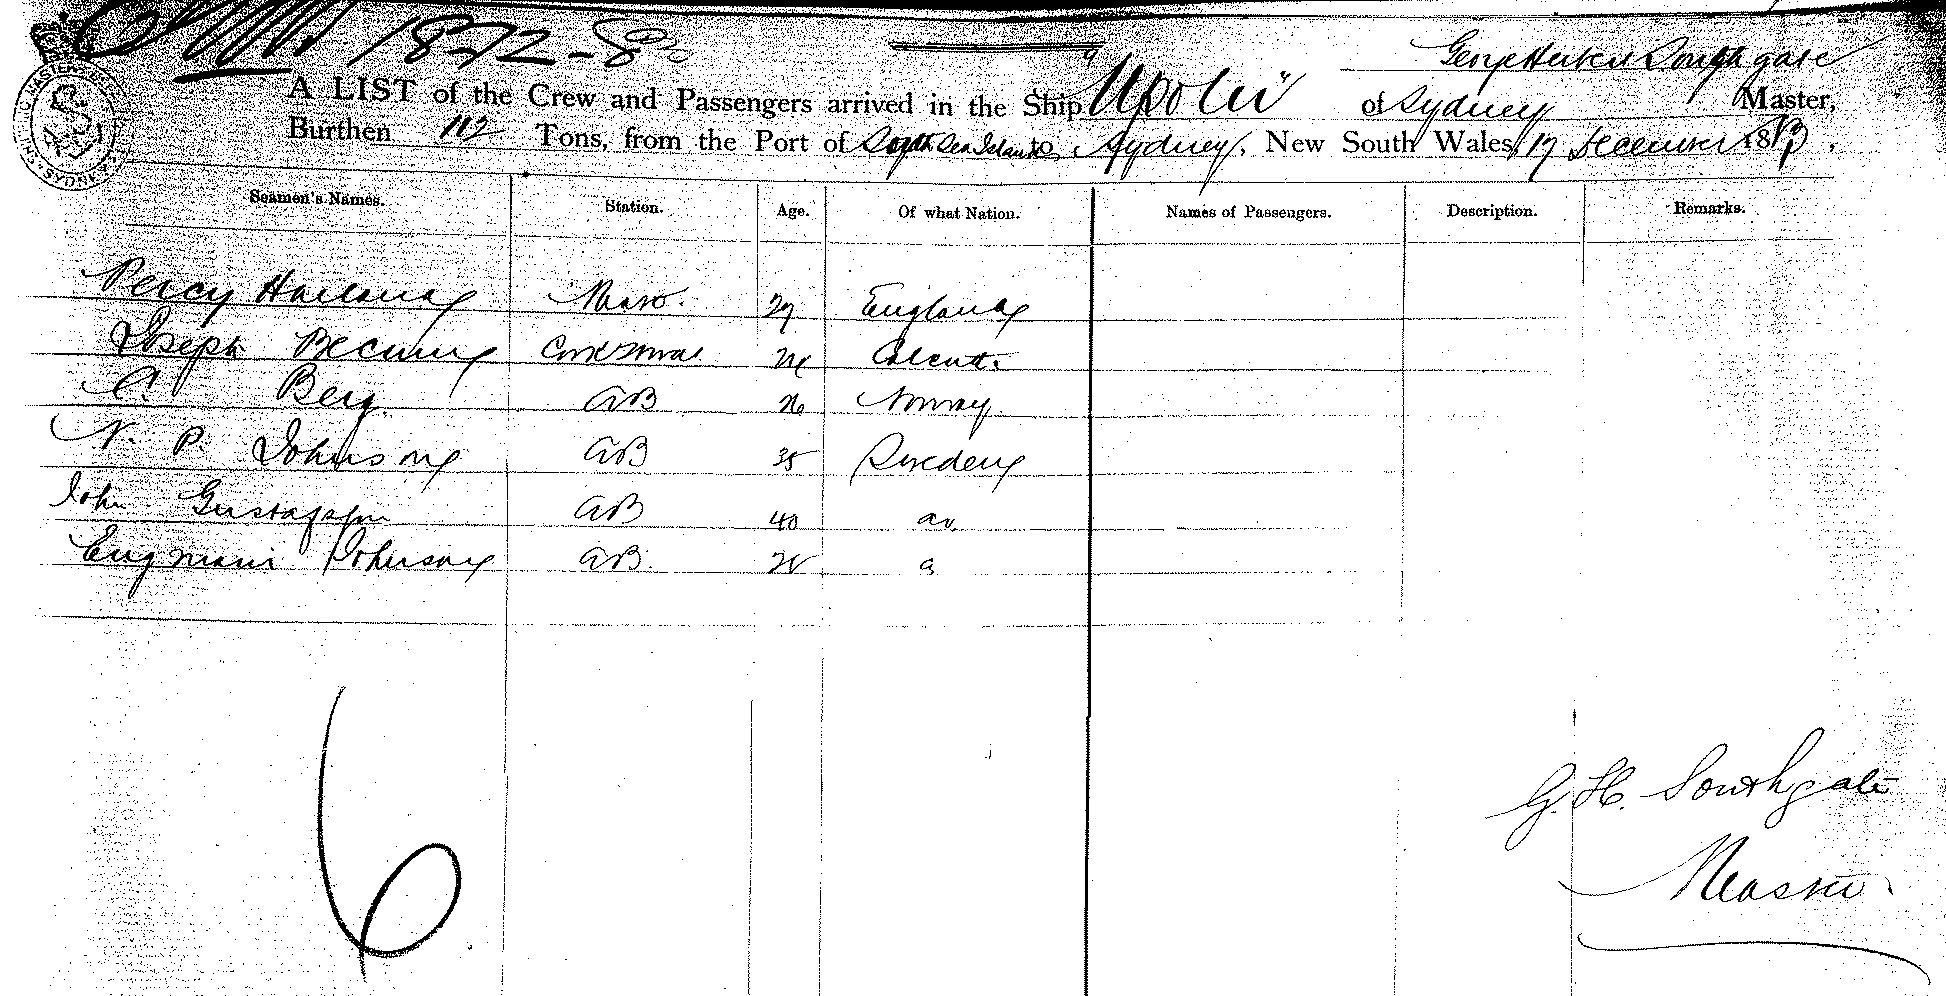 18-12-8
George Herbert Southgate
A LIST of the Crew and Passengers arrived in the Ship "Upolu" of Sydney Master,
Burthen 112 Tons, from the Port of South Sea Islands to Sydney, New South Wales, 17 December 18
Seamen's Names. Station. Age. Of what Nation. Names of Passengers. Description. Remarks.
Percy Mate 27 England
Joseph 24 Calcutta
C. Berg AB 26 Norway
N. P. Johnson AB 35 Sweden
John Gustafson AB 40
Johnson AB
6
G. H. Southgate
Master